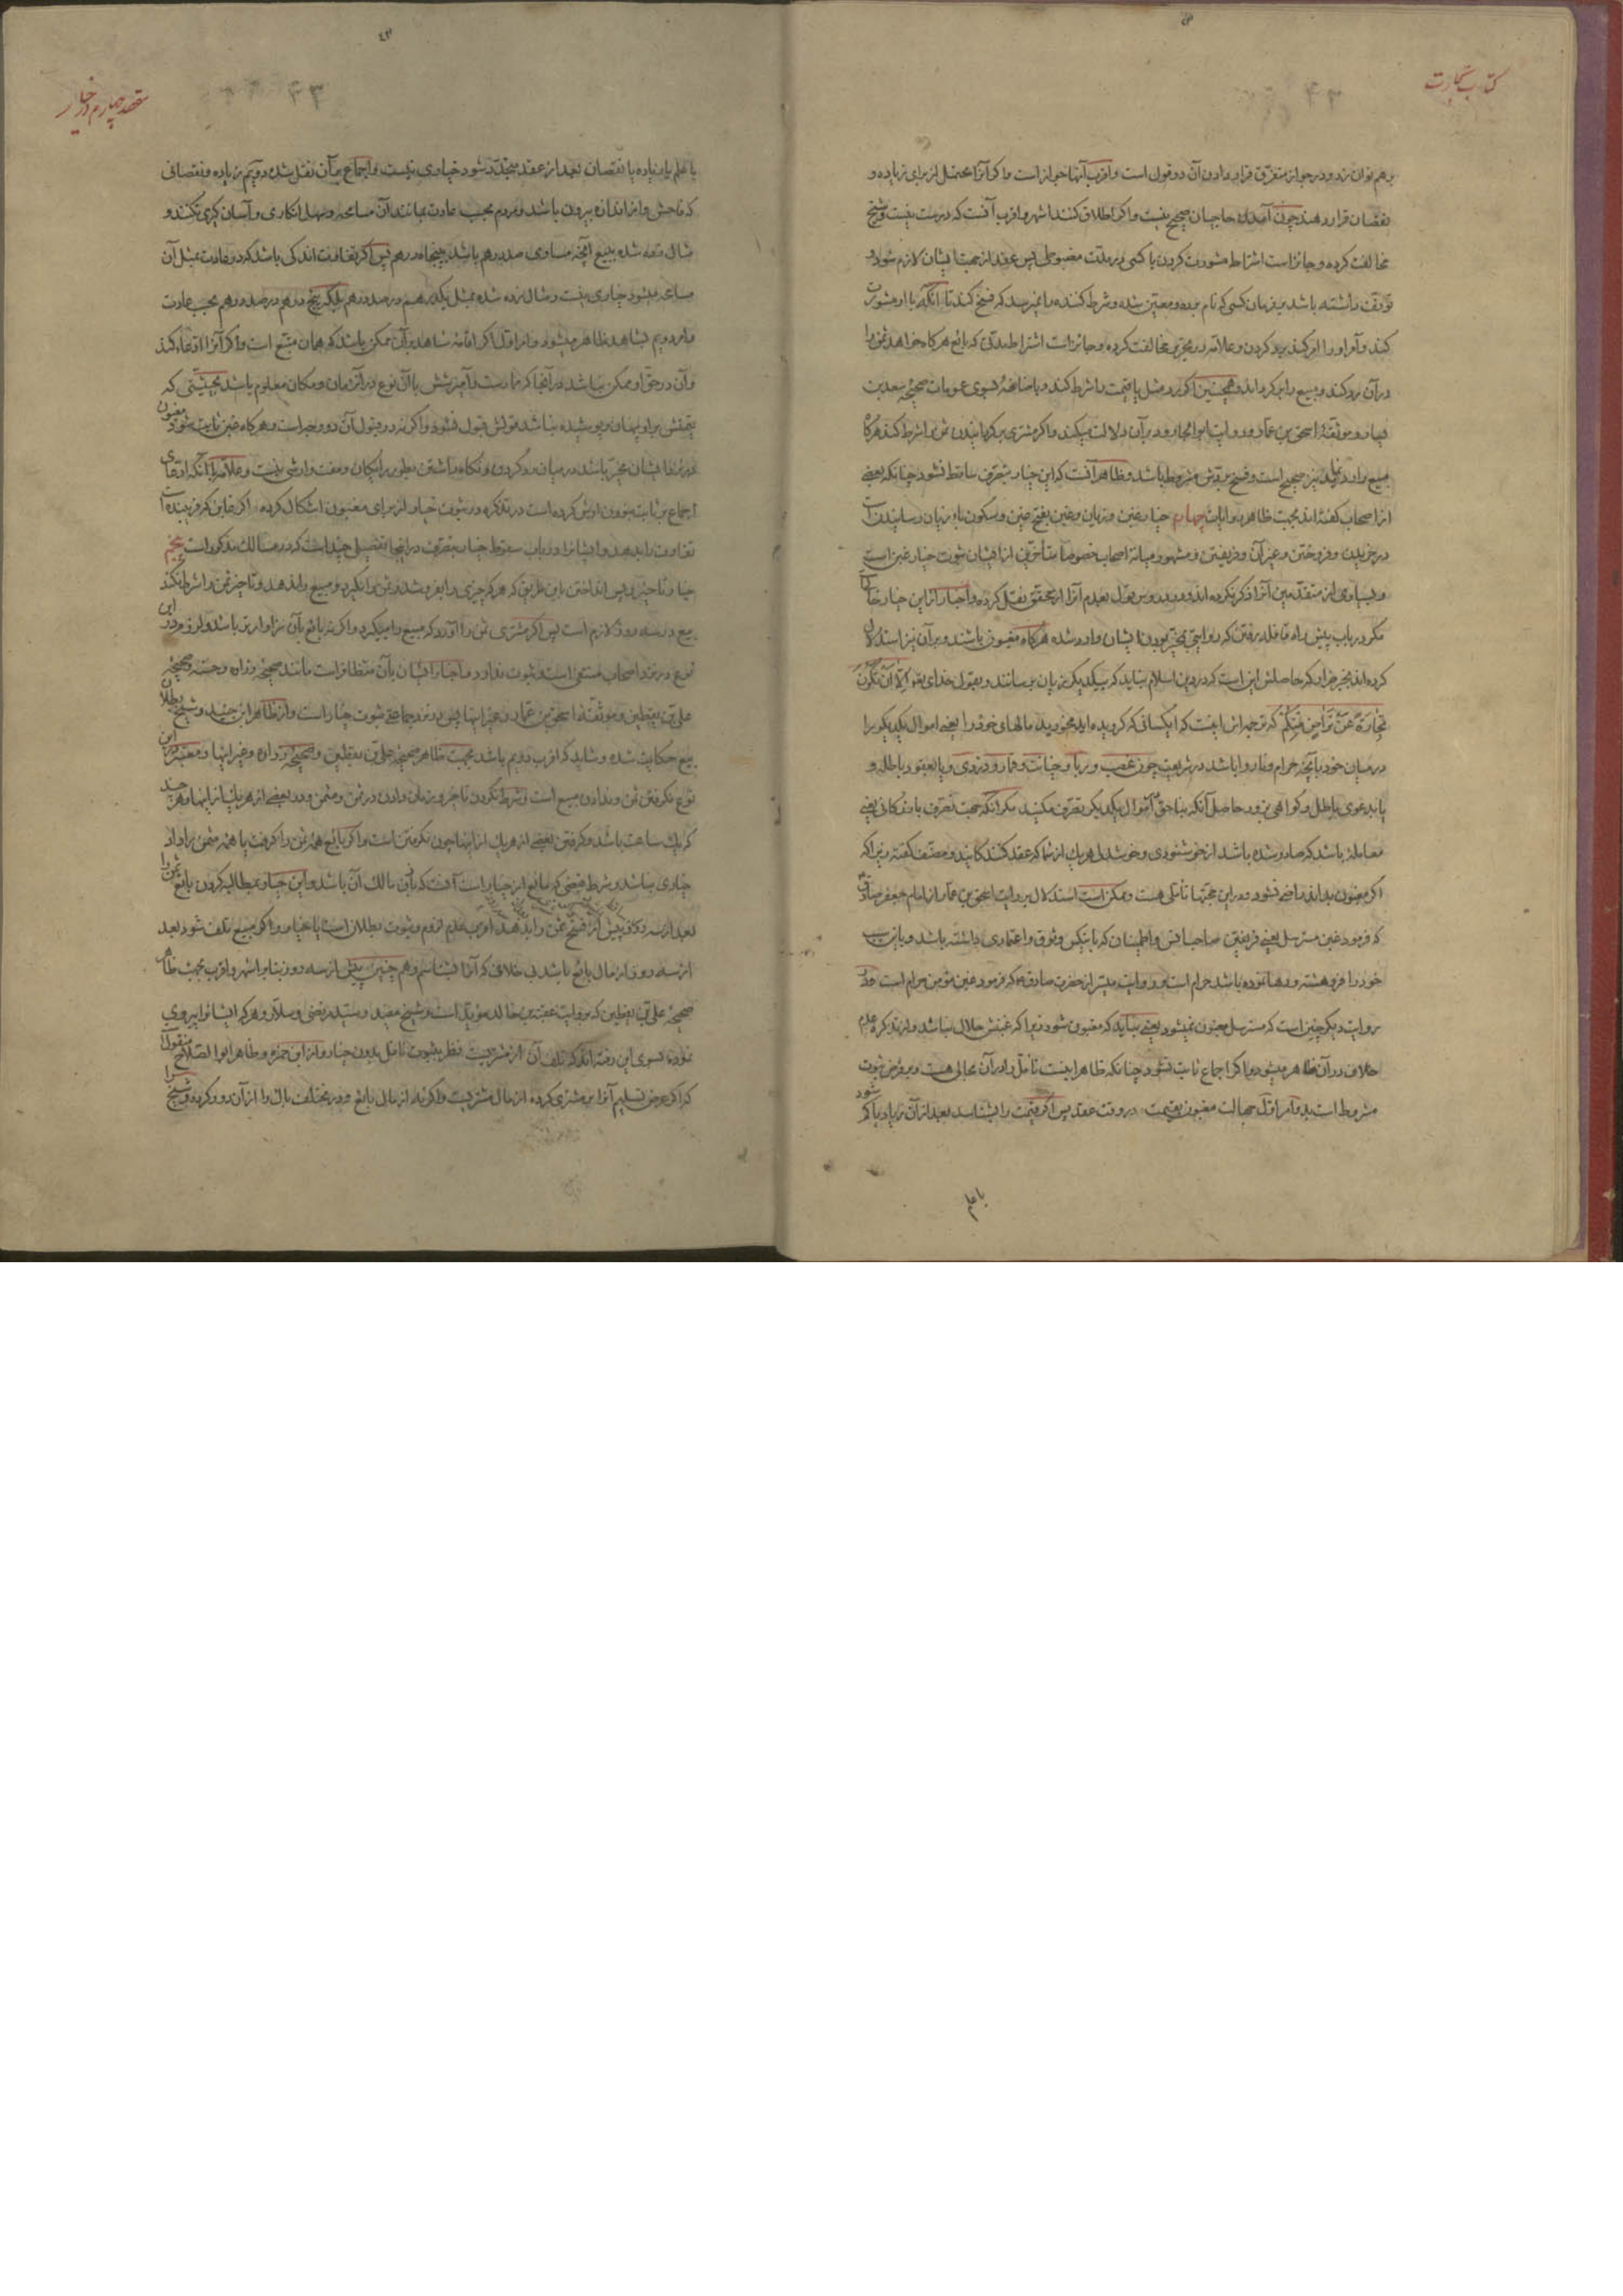 کتاب تجارت
۴۲
برهم توان زد و در جواز متفرق قرار دادن آن دو قول است و اقرب آنها جواز است و اگر آنرا محتمل از برای زیاده و
نقصان قرار دهند چون آمدن حاجیان صحیح نیست و اگر اطلاق کنند اشهر و اقرب آنست که درست نیست و شیخ
مخالفت کرده و جائز است اشتراط مشورت کردن با کسی در مدت مضبوطی پس عقد از جهت ایشان لازم شود و
توقف داشته باشد بفرمان کسی که نام برده و معین شده و شرط کننده را نمیرسد که فسخ کند تا آنکه با او مشورت
کند و او را امر کند برد کردن و علامه در تحریر مخالفت کرده و جائز است اشتراط مدتی که بائع هرگاه خواهد ثمن را
در آن رد کند و مبیع را برگرداند و همچنین اگر رد مثل یا قیمت را شرط کند و باضافه بسوی عمومات صحیحه سعید بن
یسار و موثقه اسحق بن عمار و روایت ابو الجارود بر آن دلالت میکند و اگر مشتری برگردانیدن ثمن را شرط کند هرگاه
مبیع را رد نماید نیز صحیح است و فسخ بردش مشروط باشد و ظاهر آنست که این خیار بتصرف ساقط نشود چنانکه بعضی
از اصحاب گفته‌اند بجهت ظاهر روایات چهارم خیار غبن و زیان و غبن بفتح غین و سکون باء زیان رسانیدن است
در خریدن و فروختن و غیر آن و فریفتن و مشهور میانه اصحاب خصوصا متأخرین از ایشان ثبوت خیار غبن است
و بسیاری از متقدمین آنرا ذکر نکرده‌اند و در دروس قول بعدم آنرا از محقق نقل کرده و اخبار از این خیار خالیست
مگر در باب پیش راه قافله رفتن که روایتی بتخیر بودن ایشان وارد شده هرگاه مغبون باشند و بر آن نیز استدلال
کرده‌اند بخبر ضرار که حاصلش این است که در دین اسلام نباید که بیکدیگر زیان برسانند و بقول خدای تعالی إلّا أن تکون
تجارة عن تراض منکم که ترجمه‌اش اینست که ای کسانی که گرویده‌اید مخورید مالهای خود را یعنی اموال یکدیگر را
در میان خود بآنچه حرام و ناروا باشد در شریعت چون غصب و ربا و خیانت و قمار و دزدی و بالعقود باطله و
یا بدعوی باطل و گواهی بزور حاصل آنکه بناحق در اموال یکدیگر تصرف مکنید مگر آنکه جهت تصرف بازرگانی یعنی
معامله باشد که صادر شده باشد از خوشنودی و خوشدلی هر یک از شما که عقد کنندگانید و مصنف گفته زیرا که
اگر مغبون بداند راضی نشود و در این حجتها تأملی هست و ممکن است استدلال بروایت اسحق بن عمار از امام جعفر صادق
که فرمود غبن مسترسل یعنی فریفتن صاحب انس و اطمینان که باینکس وثوق و اعتمادی داشته باشد و باین سبب
خود را فرو هشته و رها نموده باشد حرام است و روایت میسر از حضرت صادق که فرمود غبن مؤمن حرام است و در
روایت دیگر چنین است که مسترسل مغبون نمیشود یعنی نباید که مغبون شود زیرا که غبنش حلال نباشد و از تذکره عدم
خلاف در آن ظاهر میشود و اگر اجماع ثابت نشود چنانکه ظاهر اینست تأمل را در آن مجالی هست و بر فرض ثبوت
مشروط است بدو امر اول جهالت مغبون بقیمت در وقت عقد پس اگر قیمت را بشناسد بعد از آن زیاد یا کم شود
با علم
مقصد چهارم در خیار
۴۳
با علم یا زیاده یا نقصان بعد از عقد متجدد شود خیاری نیست و اجماع بر آن نقل شده دویم زیاده و نقصانی
که فاحش و از اندازه بیرون باشد و مردم بحسب عادت بمانند آن مسامحه و سهل انگاری و آسان گیری نکنند و
مثال زده شده ببیع آنچه مساوی صد درهم باشد به پنجاه درهم پس اگر تفاوت اندکی باشد که در عادت بمثل آن
مسامحه میشود خیاری نیست و مثال زده شده بمثل یکدرهم در صد درهم بلکه پنج درهم در صد درهم بحسب عادت
و امر دویم بشاهد ظاهر میشود و امر اول اگر اقامه شاهد بر آن ممکن باشد که همان متبع است و اگر آنرا ادعا کند
و آن در حق او ممکن نباشد در آنجا که ممارست و آمیزشش با آن نوع در آن زمان و مکان معلوم باشد بحیثیتی که
قیمتش بر او پنهان و پوشیده نباشد قولش قبول نشود و اگر نه در قبول آن دو وجه است و هرگاه غبن ثابت شود مغبون
نزد ایشان مخیر باشد در میان رد کردن و نگاه داشتن بطور رایگان و مفت و ارشی نیست و علامه با آنکه ادعای
اجماع بر ثابت نبودن ارش کرده است در تذکره در ثبوت خیار از برای مغبون اشکال کرده اگر غابن که فریبنده است
تفاوت را بدهد و ایشانرا در باب سقوط خیار بتصرف در اینجا تفصیلی چند است که در مسالک مذکور است پنجم
خیار تأخیر و پس انداختن باین طریق که هر که چیزی را بفروشد و ثمن را نگیرد و مبیع را ندهد و تأخیر ثمن را شرط نکند
بیع در سه روز لازم است پس اگر مشتری ثمن را آورد که مبیع را میگیرد و اگر نه بائع بآن سزاوارتر باشد و لزوم در این
نوع در نزد اصحاب مستفی است ثبوت ندارد و اخبار ایشان بآن متظافر است مانند صحیحه زراره و حسنه و صحیحه
علی بن یقطین و موثقه اسحق بن عمار و غیر اینها پس در نزد جماعتی ثبوت خیار است و از ظاهر ابن جنید و شیخ بطلان
بیع حکایت شده و شاید که اقرب دویم باشد بجهت ظاهر صحیحه علی بن یقطین و صحیحه زراره و غیر اینها و معتبر در این
نوع نگرفتن ثمن و ندادن مبیع است و شرط نکردن تأخیر و زمان دادن در ثمن و مثمن و در بعضی از هر یک از اینها هر چند
که یک ساعت باشد و گرفتن بعضی از هر یک از اینها چون نگرفتن است و اگر بائع همه ثمن را گرفت یا همه مثمن را داد
خیاری نباشد و شرط قبضی که مانع از خیار است آنست که بإذن مالک آن باشد و این خیار بمطالبه کردن بائع ثمن را
بعد از سه روز
از سه روز از مال بائع باشد بی خلافی که آنرا بشناسم و هم چنین پیش از سه روز بنابر اشهر و اقرب بجهت ظاهر
صحیحه علی بن یقطین که بروایت عقبة بن خالد مؤید است و شیخ مفید و سید مرتضی و سلار و هر که ایشانرا پیروی
نموده بسوی این رفته‌اند که تلف آن از مشتریست نظر بثبوت ناقل بدون خیار و از ابن حمزه و ظاهر ابو الصلاح منقول
که اگر عرض تسلیم آنرا بر مشتری کرده از مال مشتریست و اگر نه از مال بائع و در مختلف باک را از آن دور کرده و شیخ